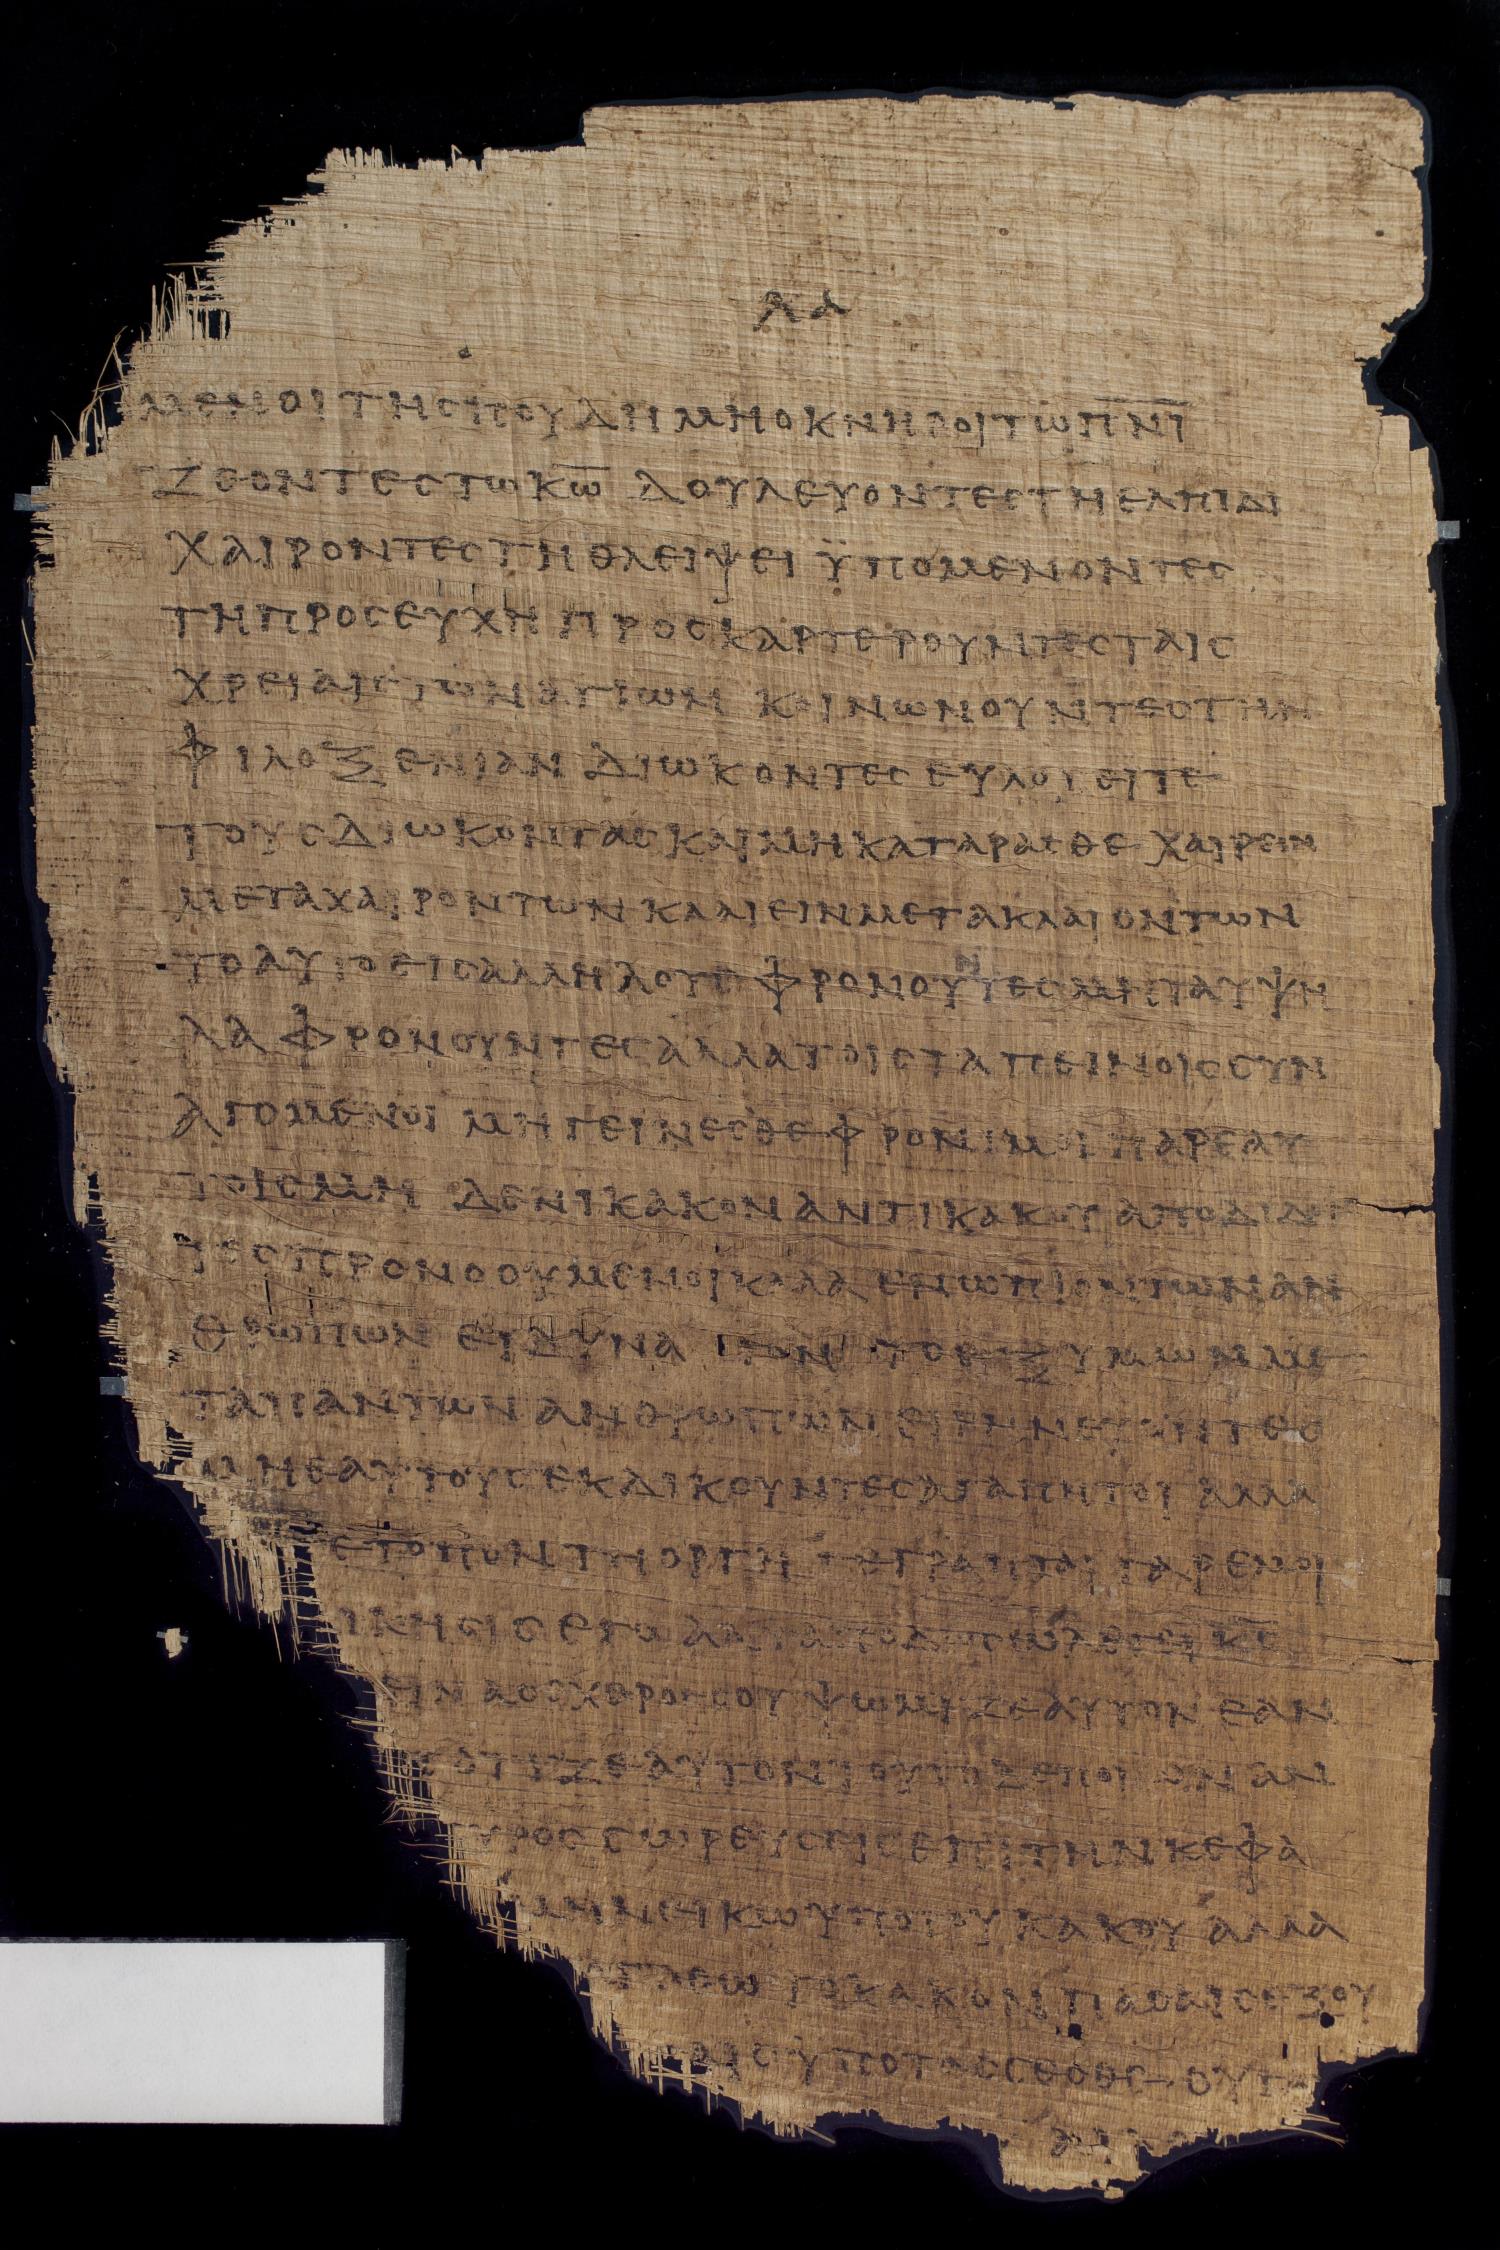 λα
μενοι τη σπουδη μη οκνηροι τω π̅ν̅ι̅
ζεοντες τω κ̅ω̅ δουλευοντες τη ελπιδι
χαιροντες τη θλειψει ϋπομενοντες
τη προσευχη προσκαρτερουντες ταις
χρειαις των αγιων κοινωνουντες την
φιλοξενιαν διωκοντες ευλογειτε
τους διωκοντας και μη καταρασθε χαιρειν
μετα χαιροντων κλαιειν μετα κλαιοντων
το αυτο εις αλληλους φρονουντες μη τα υψη
λα φρονουντες αλλα τοις ταπεινοις συν
αγομενοι μη γεινεσθε φρονιμοι παρ εαυ
τοις μηδενι κακον αντι κακου αποδιδ
τες προνοουμενοι καλα ενωπιον των αν
θρωπων ει δυνατον το εξ υμων με
τα παντων ανθρωπων ειρηνευοντες
μη εαυτους εκδικουντες αγαπητοι αλλα
τοπον τη οργη γεγραπται γαρ εμοι
ικησις εγω ανταποδωσω λεγει κ̅ς̅
πειν ο εχθρος σου ψωμιζε αυτον εαν
ποτιζε αυτον τουτο ποιων αν
υρος σωρευσεις επι την κεφα
μη νεικω υπο του κακου αλλα
το κακον πασαις εξου
αις υποτασσεσθε ου γα